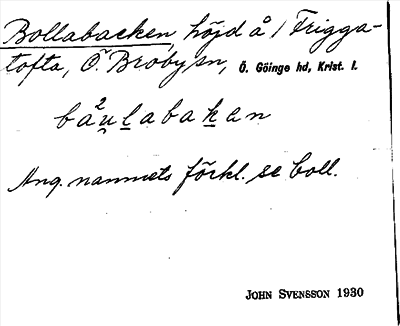 Bollabacken, höjd å 1 Frigga-
tofta, Ö. Broby sn, Ö. Göinge hd, Krist. l.
ba²u̯l̲abak̲an
Ang. namnets förkl. se boll.
JOHN SVENSSON 1930